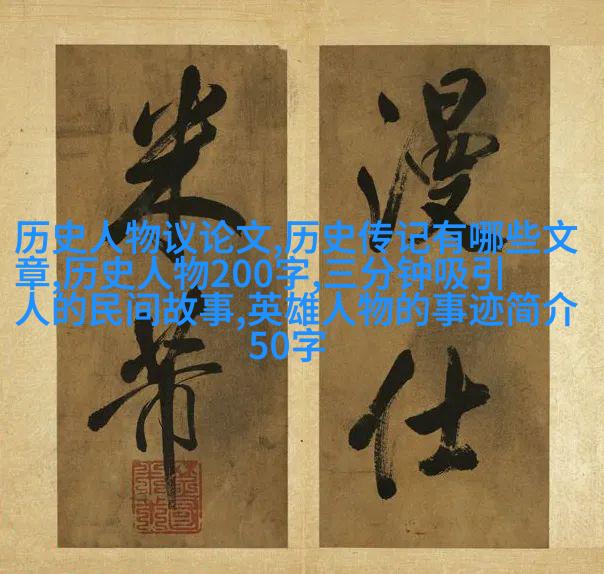 漫仕
米芾
历史人物议论文,历史传记有哪些文
章,历史人物200字,三分钟吸引
人的民间故事,英雄人物的事迹简介
50字